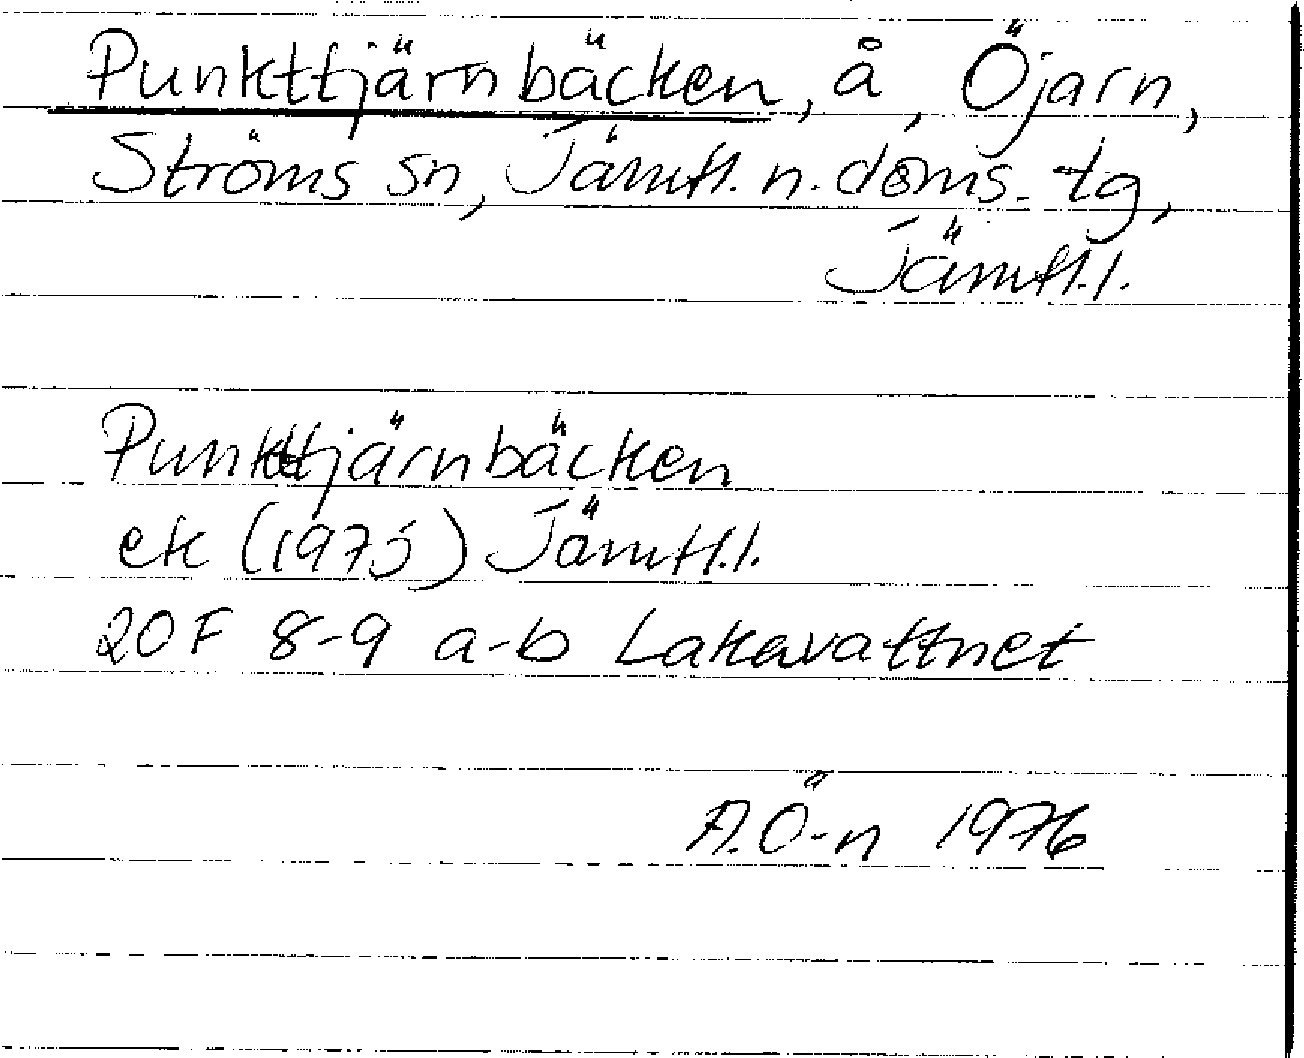 Punkttjärnbäcken, å, Öjarn,
Ströms sn, Jämtl. n. doms. tg,
Jämtl.l.
Punkttjärnbäcken
ek (1975) Jämtl.l.
20F 8-9 a-b Lakavattnet
A.Ö-n 1976